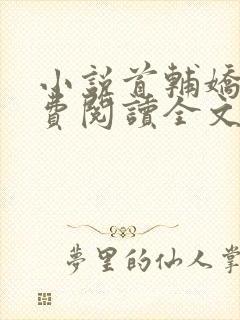 小說首輔嬌
費閱讀全文
夢里的仙人掌